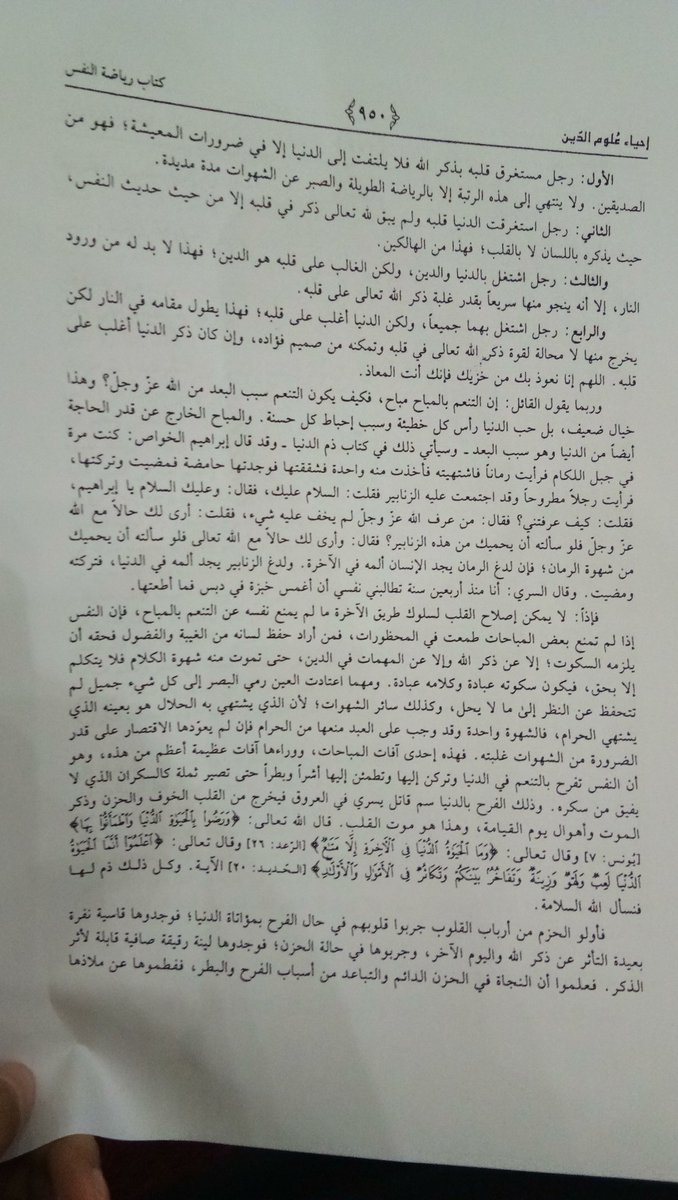 كتاب رياضة النفس
﴿٩٥٠﴾
إحياء عُلوم الدّين
الأول: رجل مستغرق قلبه بذكر الله فلا يلتفت إلى الدنيا إلا في ضرورات المعيشة؛ فهو من
الصديقين. ولا ينتهي إلى هذه الرتبة إلا بالرياضة الطويلة والصبر عن الشهوات مدة مديدة.
الثاني: رجل استغرقت الدنيا قلبه ولم يبق لله تعالى ذكر في قلبه إلا من حيث حديث النفس،
حيث يذكره باللسان لا بالقلب؛ فهذا من الهالكين.
والثالث: رجل اشتغل بالدنيا والدين، ولكن الغالب على قلبه هو الدين؛ فهذا لا بد له من ورود
النار، إلا أنه ينجو منها سريعاً بقدر غلبة ذكر الله تعالى على قلبه.
والرابع: رجل اشتغل بهما جميعاً، ولكن الدنيا أغلب على قلبه؛ فهذا يطول مقامه في النار لكن
يخرج منها لا محالة لقوة ذكر الله تعالى في قلبه وتمكنه من صميم فؤاده، وإن كان ذكر الدنيا أغلب على
قلبه. اللهم إنا نعوذ بك من خزيك فإنك أنت المعاذ.
وربما يقول القائل: إن التنعم بالمباح مباح، فكيف يكون التنعم سبب البعد من الله عزّ وجلّ؟ وهذا
خيال ضعيف، بل حب الدنيا رأس كل خطيئة وسبب إحباط كل حسنة. والمباح الخارج عن قدر الحاجة
أيضاً من الدنيا وهو سبب البعد ـ وسيأتي ذلك في كتاب ذم الدنيا ـ وقد قال إبراهيم الخواص: كنت مرة
في جبل اللكام فرأيت رماناً فاشتهيته فأخذت منه واحدة فشققتها فوجدتها حامضة فمضيت وتركتها،
فرأيت رجلاً مطروحاً وقد اجتمعت عليه الزنابير فقلت: السلام عليك، فقال: وعليك السلام يا إبراهيم،
فقلت: كيف عرفتني؟ فقال: من عرف الله عزّ وجلّ لم يخف عليه شيء، فقلت: أرى لك حالاً مع الله
عزّ وجلّ فلو سألته أن يحميك من هذه الزنابير؟ فقال: وأرى لك حالاً مع الله تعالى فلو سألته أن يحميك
من شهوة الرمان؛ فإن لدغ الرمان يجد الإنسان ألمه في الآخرة. ولدغ الزنابير يجد ألمه في الدنيا، فتركته
ومضيت. وقال السري: أنا منذ أربعين سنة تطالبني نفسي أن أغمس خبزة في دبس فما أطعتها.
فإذاً: لا يمكن إصلاح القلب لسلوك طريق الآخرة ما لم يمنع نفسه عن التنعم بالمباح، فإن النفس
إذا لم تمنع بعض المباحات طمعت في المحظورات، فمن أراد حفظ لسانه من الغيبة والفضول فحقه أن
يلزمه السكوت؛ إلا عن ذكر الله وإلا عن المهمات في الدين، حتى تموت منه شهوة الكلام فلا يتكلم
إلا بحق، فيكون سكوته عبادة وكلامه عبادة. ومهما اعتادت العين رمي البصر إلى كل شيء جميل لم
تتحفظ عن النظر إلىٰ ما لا يحل، وكذلك سائر الشهوات؛ لأن الذي يشتهي به الحلال هو بعينه الذي
يشتهي الحرام، فالشهوة واحدة وقد وجب على العبد منعها من الحرام فإن لم يعوّدها الاقتصار على قدر
الضرورة من الشهوات غلبته. فهذه إحدى آفات المباحات، ووراءها آفات عظيمة أعظم من هذه، وهو
أن النفس تفرح بالتنعم في الدنيا وتركن إليها وتطمئن إليها أشراً وبطراً حتى تصير ثملة كالسكران الذي لا
يفيق من سكره. وذلك الفرح بالدنيا سم قاتل يسري في العروق فيخرج من القلب الخوف والحزن وذكر
الموت وأهوال يوم القيامة، وهذا هو موت القلب. قال الله تعالى: ﴿وَرَضُوا۟ بِٱلْحَيَوٰةِ ٱلدُّنْيَا وَٱطْمَأَنُّوا۟ بِهَا﴾
[يُونس: ٧] وقال تعالى: ﴿وَمَا ٱلْحَيَوٰةُ ٱلدُّنْيَا فِى ٱلْأَخِرَةِ إِلَّا مَتَٰعٌ﴾ [الرّعد: ٢٦] وقال تعالى: ﴿ٱعْلَمُوٓا۟ أَنَّمَا ٱلْحَيَوٰةُ
ٱلدُّنْيَا لَعِبٌ وَلَهْوٌ وَزِينَةٌ وَتَفَاخُرٌۢ بَيْنَكُمْ وَتَكَاثُرٌ فِى ٱلْأَمْوَٰلِ وَٱلْأَوْلَٰدِ﴾ [الحَديد: ٢٠] الآية. وكل ذلك ذم لها
فنسأل الله السلامة.
فأولو الحزم من أرباب القلوب جربوا قلوبهم في حال الفرح بمؤاتاة الدنيا؛ فوجدوها قاسية نفرة
بعيدة التأثر عن ذكر الله واليوم الآخر، وجربوها في حالة الحزن؛ فوجدوها لينة رقيقة صافية قابلة لأثر
الذكر. فعلموا أن النجاة في الحزن الدائم والتباعد من أسباب الفرح والبطر، ففطموها عن ملاذها